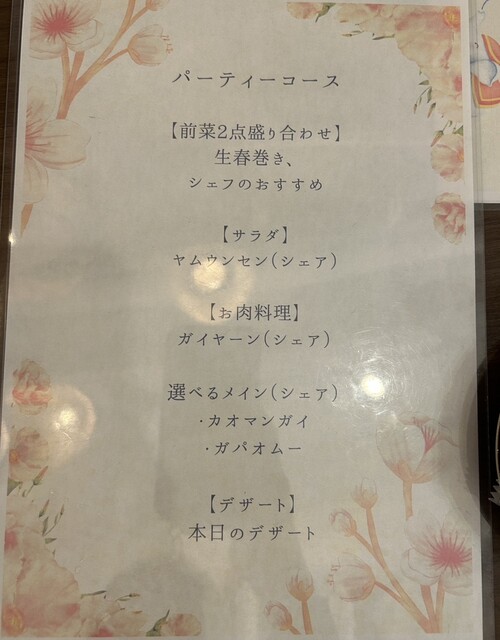 パーティーコース
【前菜2点盛り合わせ】
生春巻き、
シェフのおすすめ
【サラダ】
ヤムウンセン(シェア)
【お肉料理】
ガイヤーン(シェア)
選べるメイン(シェア)
・カオマンガイ
・ガパオムー
【デザート】
本日のデザート